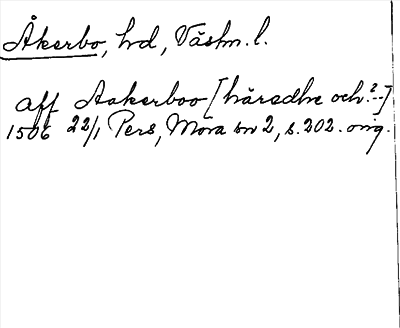 Åkerbo, hd, Västm. l.
aff Aakerboo [häredhe och ?--]
1506 22/1 Pers, Mora br 2, s. 202. orig.